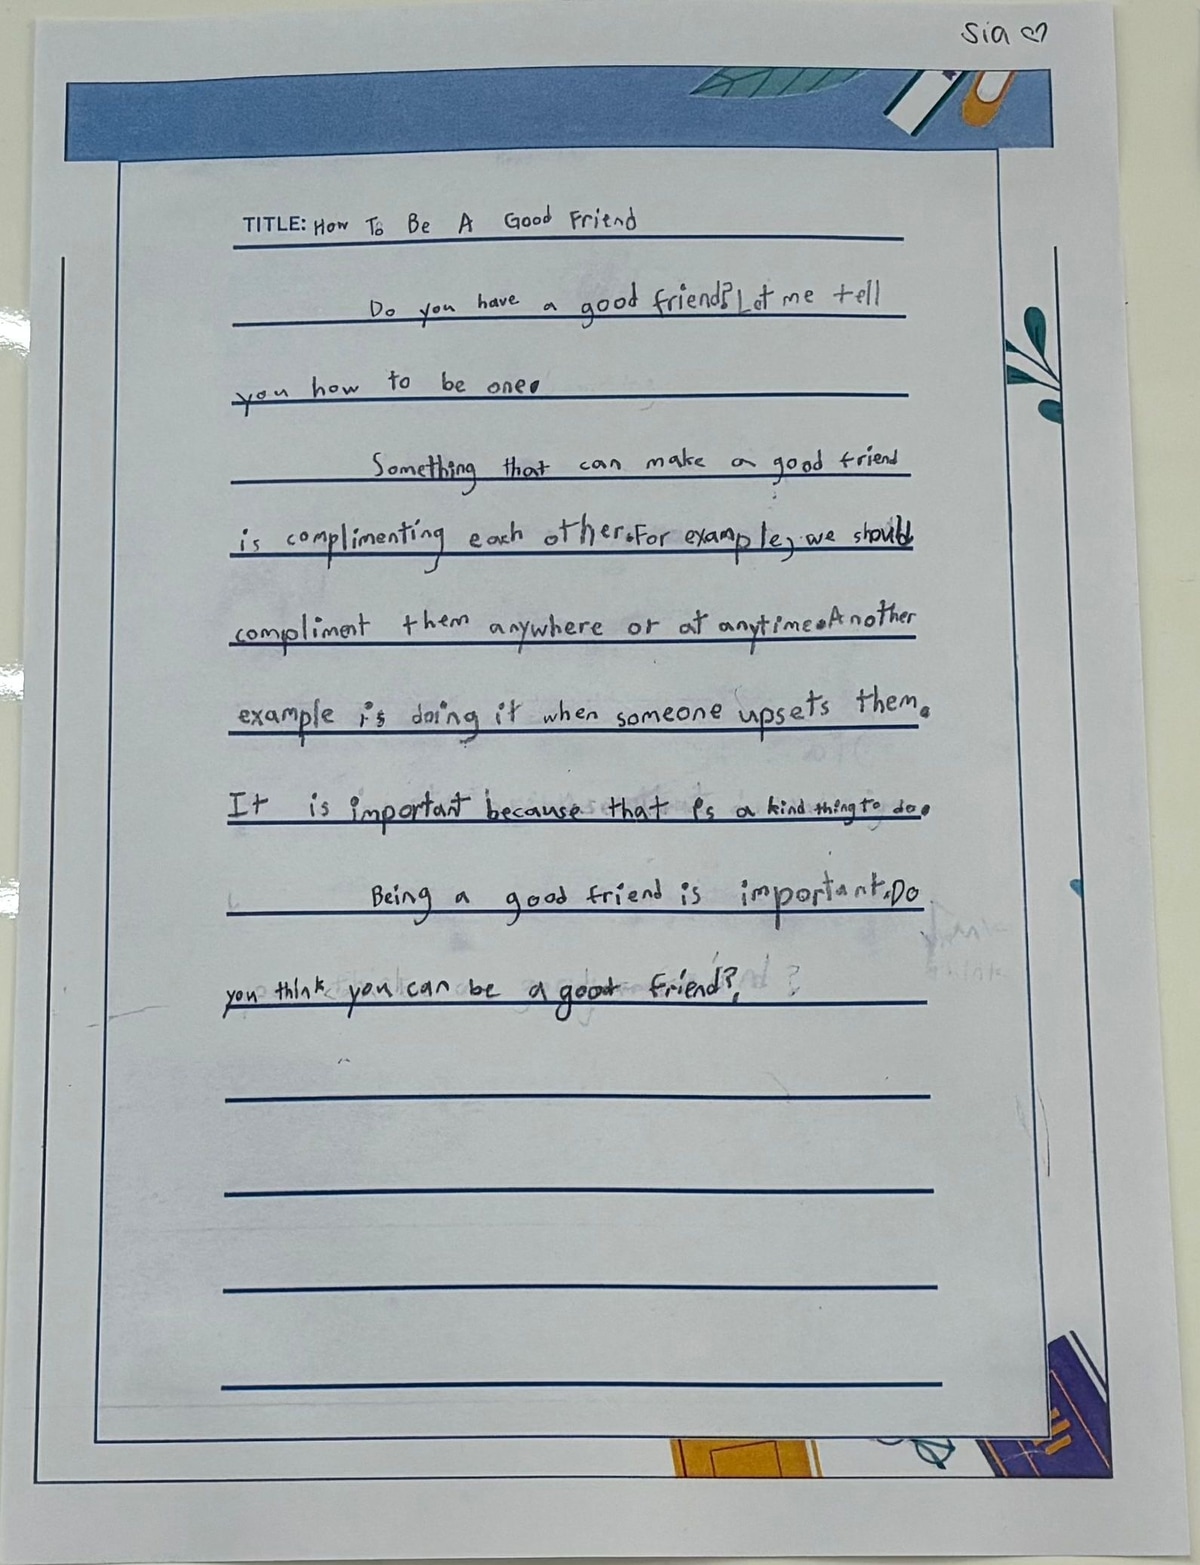 Sia ♡
TITLE: How To Be A Good Friend
Do you have a good friend? Let me tell
you how to be one.
Something that can make a good friend
is complimenting each other. For example, we should
compliment them anywhere or at anytime. Another
example is doing it when someone upsets them.
It is important because that is a kind thing to do.
Being a good friend is important. Do
you think you can be a good friend?